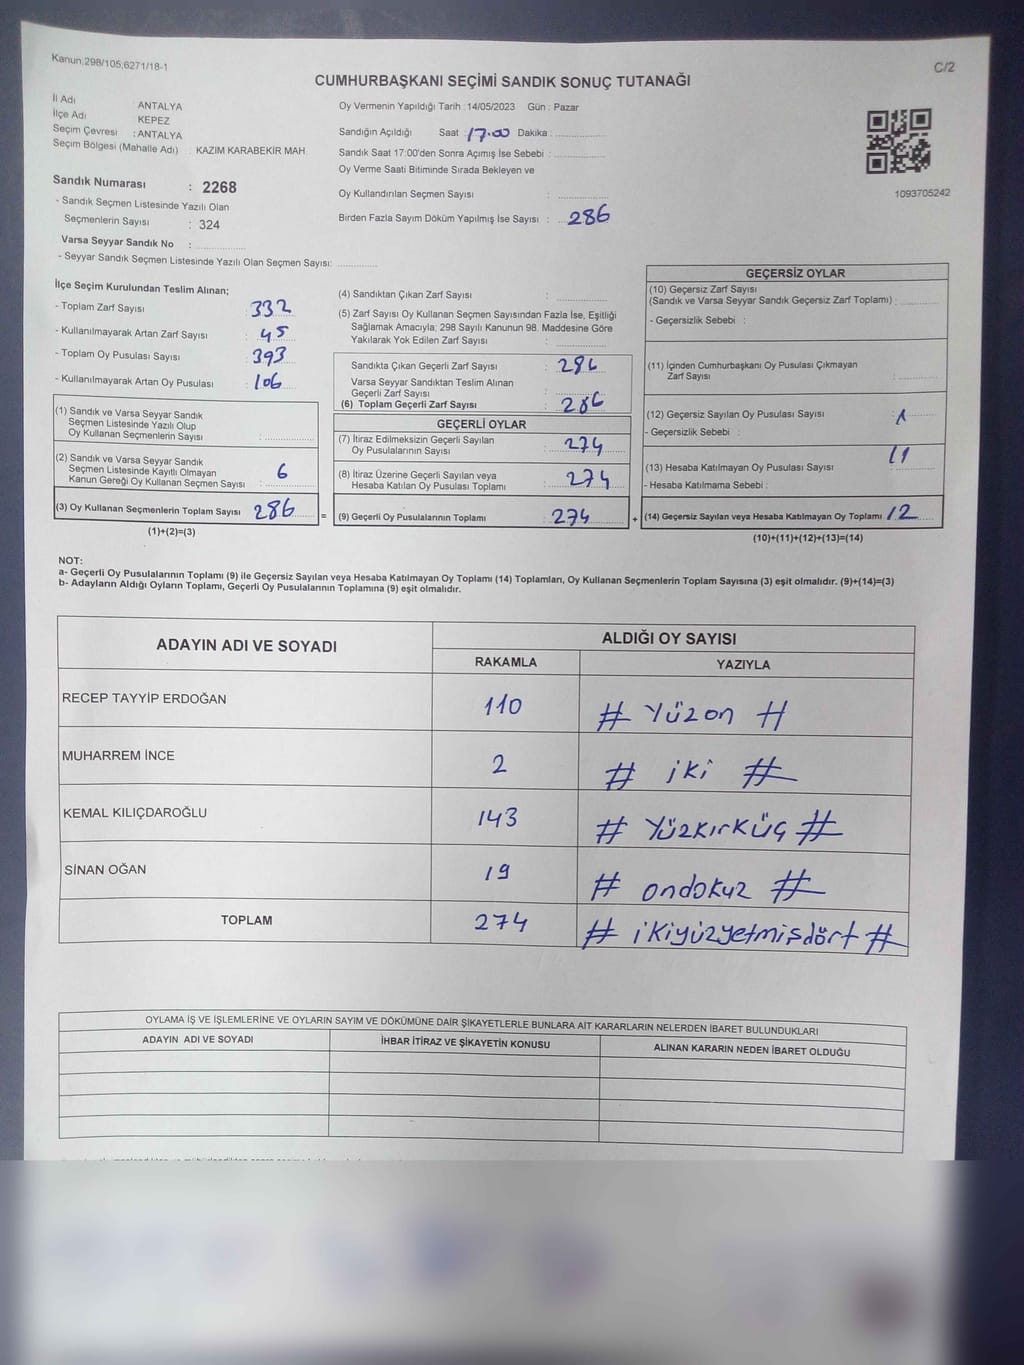 Kanun.298/105,6271/18-1
C/2
CUMHURBAŞKANI SEÇİMİ SANDIK SONUÇ TUTANAĞI
İl Adı ANTALYA
İlçe Adı KEPEZ
Seçim Çevresi : ANTALYA
Seçim Bölgesi (Mahalle Adı) : KAZIM KARABEKİR MAH.
Sandık Numarası : 2268
- Sandık Seçmen Listesinde Yazılı Olan
Seçmenlerin Sayısı : 324
Varsa Seyyar Sandık No :
- Seyyar Sandık Seçmen Listesinde Yazılı Olan Seçmen Sayısı:
Oy Vermenin Yapıldığı Tarih : 14/05/2023 Gün : Pazar
Sandığın Açıldığı Saat : 17.00 Dakika :
Sandık Saat 17:00'den Sonra Açımış İse Sebebi :
Oy Verme Saati Bitiminde Sırada Bekleyen ve
Oy Kullandırılan Seçmen Sayısı :
Birden Fazla Sayım Döküm Yapılmış İse Sayısı : 286
1093705242
İlçe Seçim Kurulundan Teslim Alınan;
- Toplam Zarf Sayısı : 332
- Kullanılmayarak Artan Zarf Sayısı : 45
- Toplam Oy Pusulası Sayısı : 393
- Kullanılmayarak Artan Oy Pusulası : 106
(1) Sandık ve Varsa Seyyar Sandık
Seçmen Listesinde Yazılı Olup
Oy Kullanan Seçmenlerin Sayısı :
(2) Sandık ve Varsa Seyyar Sandık
Seçmen Listesinde Kayıtlı Olmayan
Kanun Gereği Oy Kullanan Seçmen Sayısı : 6
(3) Oy Kullanan Seçmenlerin Toplam Sayısı 286 =
(1)+(2)=(3)
(4) Sandıktan Çıkan Zarf Sayısı :
(5) Zarf Sayısı Oy Kullanan Seçmen Sayısından Fazla İse, Eşitliği
Sağlamak Amacıyla; 298 Sayılı Kanunun 98. Maddesine Göre
Yakılarak Yok Edilen Zarf Sayısı :
Sandıkta Çıkan Geçerli Zarf Sayısı : 286
Varsa Seyyar Sandıktan Teslim Alınan
Geçerli Zarf Sayısı :
(6) Toplam Geçerli Zarf Sayısı : 286
GEÇERLİ OYLAR
(7) İtiraz Edilmeksizin Geçerli Sayılan
Oy Pusulalarının Sayısı : 274
(8) İtiraz Üzerine Geçerli Sayılan veya
Hesaba Katılan Oy Pusulası Toplamı : 274
(9) Geçerli Oy Pusulalarının Toplamı : 274 +
GEÇERSİZ OYLAR
(10) Geçersiz Zarf Sayısı
(Sandık ve Varsa Seyyar Sandık Geçersiz Zarf Toplamı) :
- Geçersizlik Sebebi :
(11) İçinden Cumhurbaşkanı Oy Pusulası Çıkmayan
Zarf Sayısı :
(12) Geçersiz Sayılan Oy Pusulası Sayısı : 1
- Geçersizlik Sebebi :
(13) Hesaba Katılmayan Oy Pusulası Sayısı : 11
- Hesaba Katılmama Sebebi :
(14) Geçersiz Sayılan veya Hesaba Katılmayan Oy Toplamı 12
(10)+(11)+(12)+(13)=(14)
NOT:
a- Geçerli Oy Pusulalarının Toplamı (9) ile Geçersiz Sayılan veya Hesaba Katılmayan Oy Toplamı (14) Toplamları, Oy Kullanan Seçmenlerin Toplam Sayısına (3) eşit olmalıdır. (9)+(14)=(3)
b- Adayların Aldığı Oyların Toplamı, Geçerli Oy Pusulalarının Toplamına (9) eşit olmalıdır.
ADAYIN ADI VE SOYADI ALDIĞI OY SAYISI
RAKAMLA YAZIYLA
RECEP TAYYİP ERDOĞAN 110 # Yüzon #
MUHARREM İNCE 2 # iki #
KEMAL KILIÇDAROĞLU 143 # Yüzkırküç #
SİNAN OĞAN 19 # ondokuz #
TOPLAM 274 # ikiyüzyetmişdört #
OYLAMA İŞ VE İŞLEMLERİNE VE OYLARIN SAYIM VE DÖKÜMÜNE DAİR ŞİKAYETLERLE BUNLARA AİT KARARLARIN NELERDEN İBARET BULUNDUKLARI
ADAYIN ADI VE SOYADI İHBAR İTİRAZ VE ŞİKAYETİN KONUSU ALINAN KARARIN NEDEN İBARET OLDUĞU